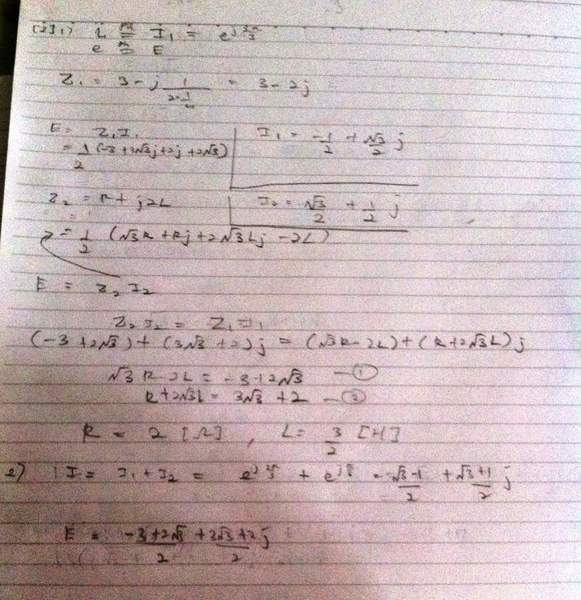 i ≡ I₁ = e^{j 2π/3}
e ≡ E
Z₁ = 3 - j 1/(2·1/4) = 3 - 2j
E = Z₁I₁
I₁ = -1/2 + √3/2 j
= 1/2 (-3 + 3√3j + 2j + 2√3)
Z₂ = R + j2L
I₂ = √3/2 + 1/2 j
= 1/2 (√3R + Rj + 2√3Lj - 2L)
E = Z₂I₂
Z₂I₂ = Z₁I₁
(-3 + 2√3) + (3√3 + 2)j = (√3R - 2L) + (R + 2√3L)j
√3R - 2L = -3 + 2√3 — ①
R + 2√3L = 3√3 + 2 — ②
R = 2 [Ω], L = 3/2 [H]
2) I = I₁ + I₂ = + = √3-1/2 + √3+1/2 j
E = -3+2√3/2 + 3√3+2/2 j